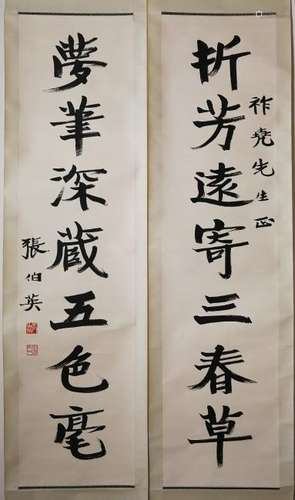 折芳遠寄三春草
祚堯先生正
夢筆深蔵五色毫
張伯英